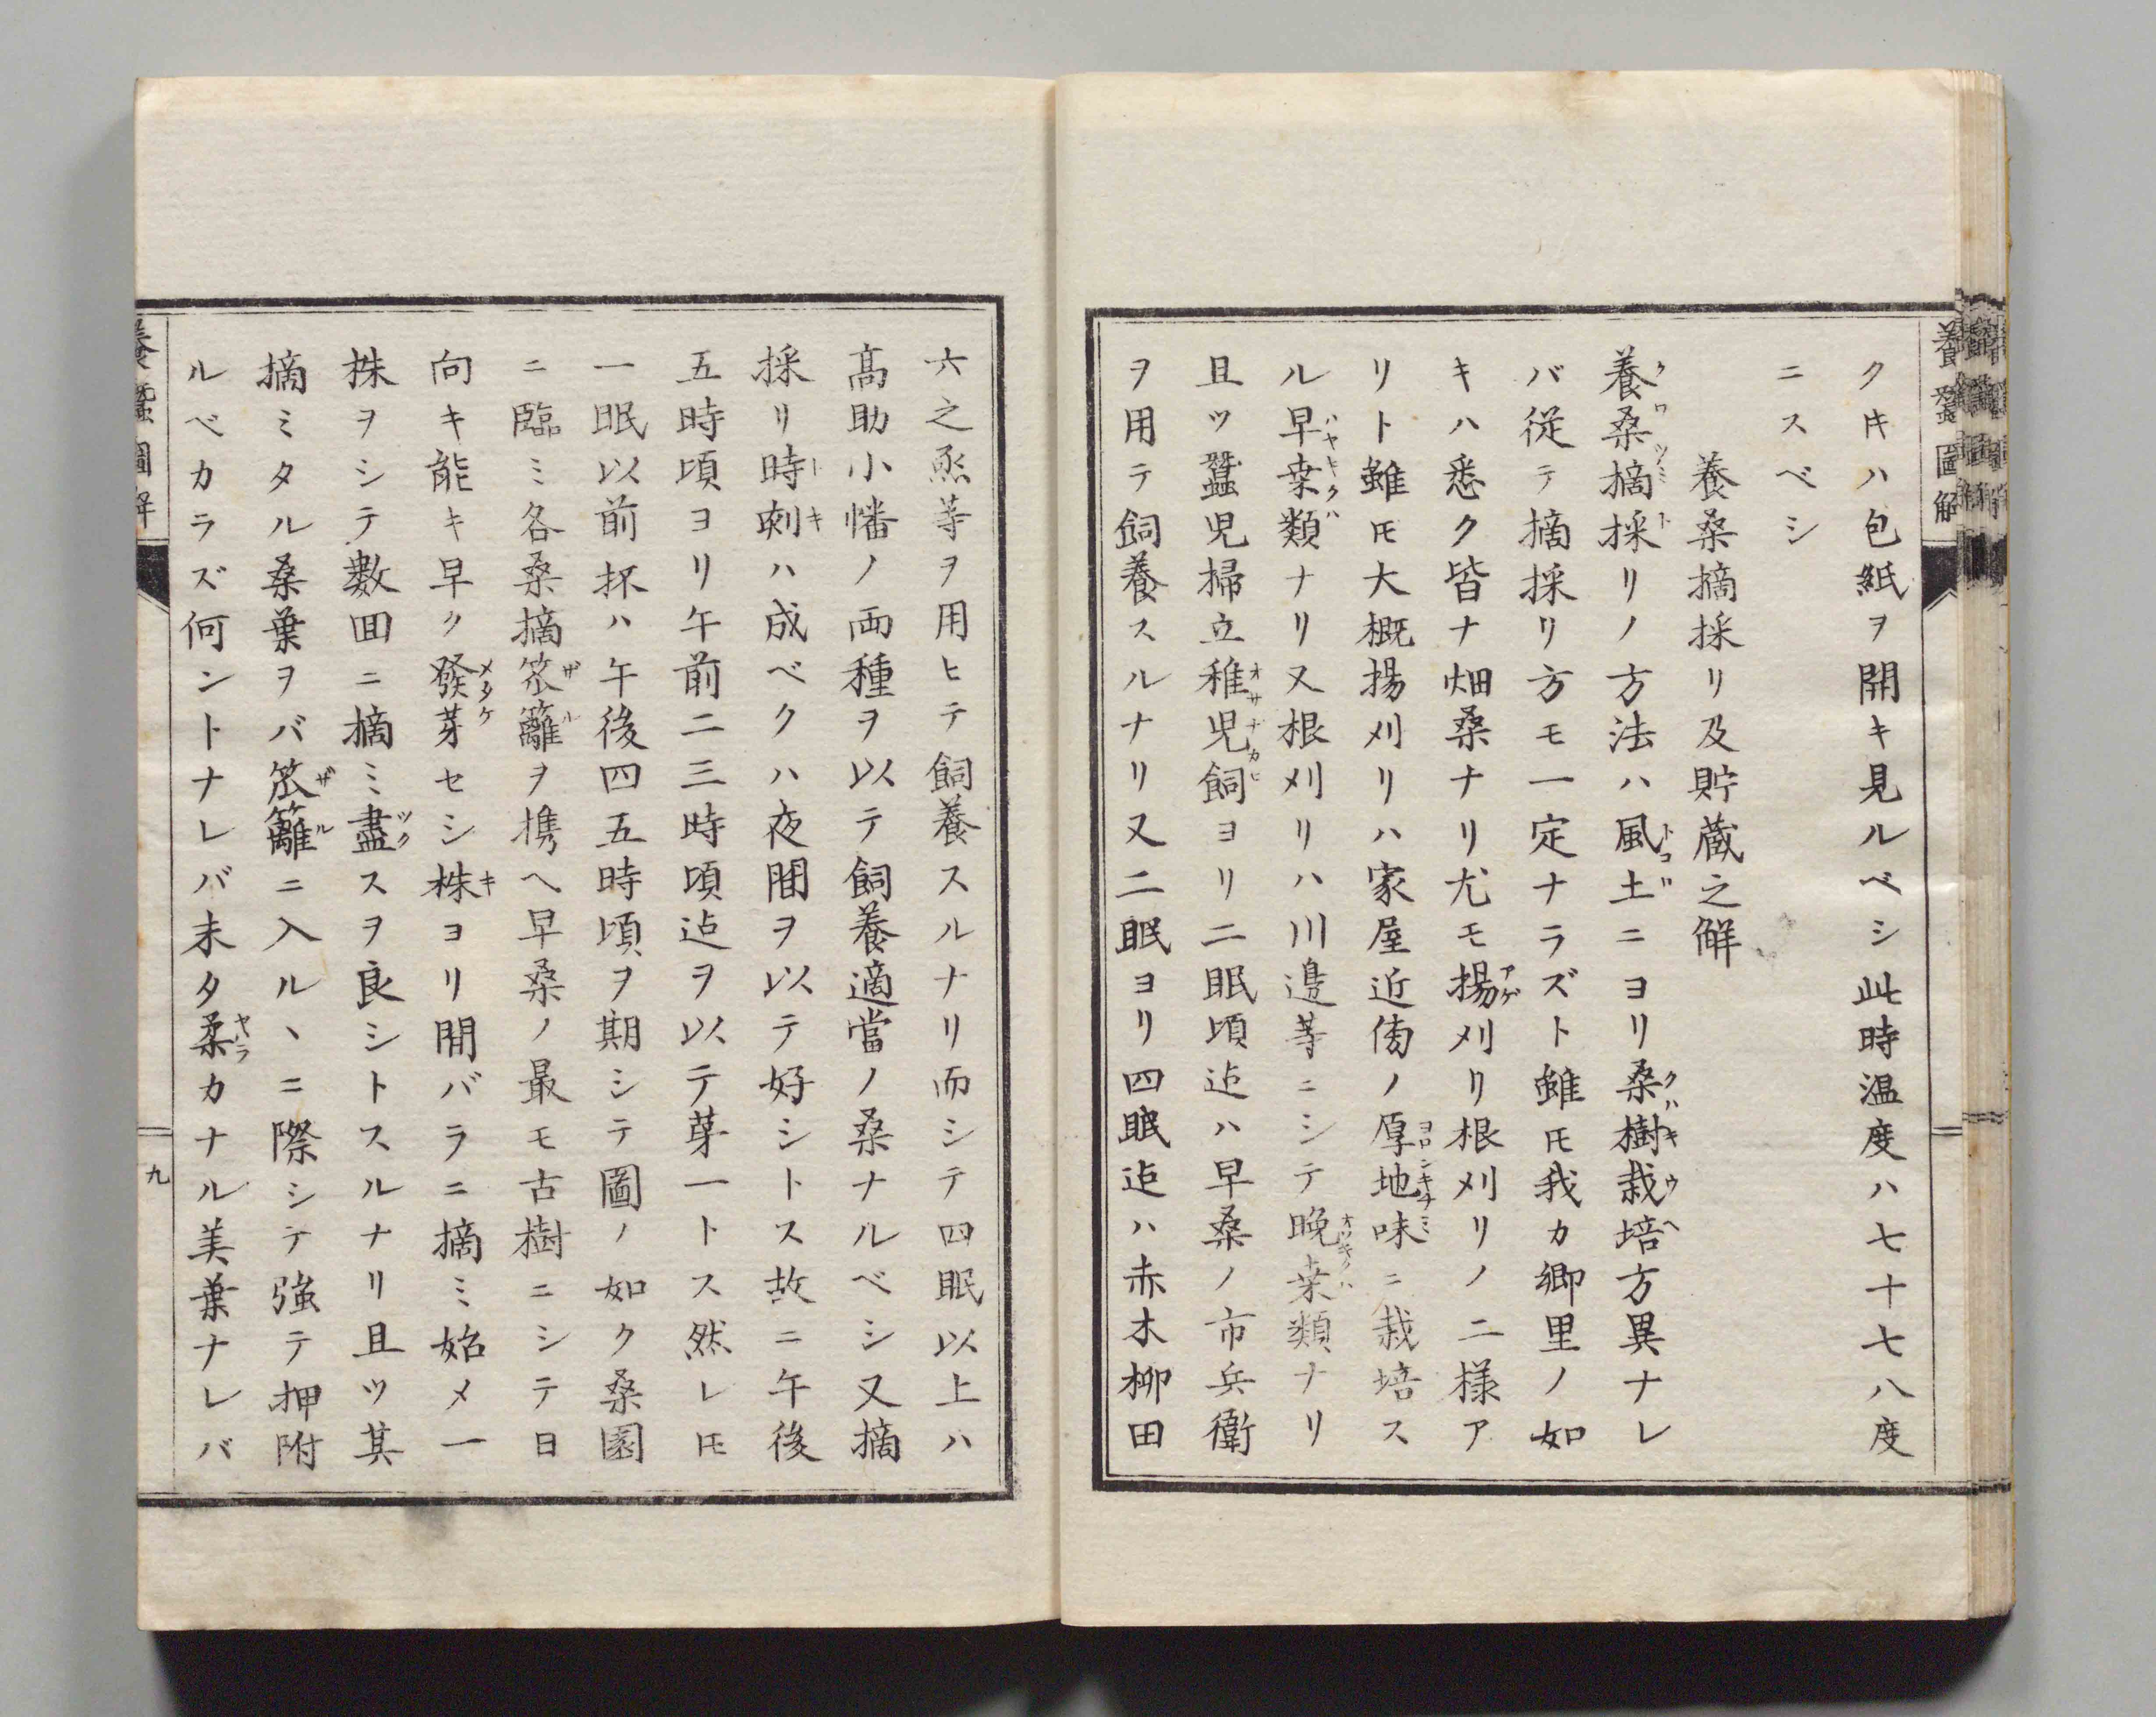 養蠶圖解
クキハ包紙ヲ開キ見ルベシ此時温度ハ七十七八度
ニスベシ
養桑摘採リ及貯蔵之解
養桑摘採リノ方法ハ風土ニヨリ桑樹栽培方異ナレ
バ従テ摘採リ方モ一定ナラズト雖モ我カ郷里ノ如
キハ悉ク皆ナ畑桑ナリ尤モ揚刈リ根刈リノ二様ア
リト雖モ大概揚刈リハ家屋近傍ノ厚地味ニ栽培ス
ル早桒類ナリ又根刈リハ川邉等ニシテ晩桒類ナリ
且ツ蠶児掃立稚児飼ヨリ二眠頃迠ハ早桑ノ市兵衛
ヲ用テ飼養スルナリ又二眠ヨリ四眠迠ハ赤木柳田
六之烝等ヲ用ヒテ飼養スルナリ而シテ四眠以上ハ
髙助小幡ノ両種ヲ以テ飼養適當ノ桑ナルベシ又摘
採リ時刻ハ成ベクハ夜間ヲ以テ好シトス故ニ午後
五時頃ヨリ午前二三時頃迠ヲ以テ苐一トス然レ𪜈
一眠以前抔ハ午後四五時頃ヲ期シテ圖ノ如ク桑園
ニ臨ミ各桑摘笊籬ヲ携ヘ早桑ノ最モ古樹ニシテ日
向キ能キ早ク發芽セシ株ヨリ開バラニ摘ミ始メ一
株ヲシテ數回ニ摘ミ盡スヲ良シトスルナリ且ツ其
摘ミタル桑葉ヲバ笊籬ニ入ルヽニ際シテ強テ押附
ルベカラズ何ントナレバ未タ柔カナル美葉ナレバ
養蠶圖解
九